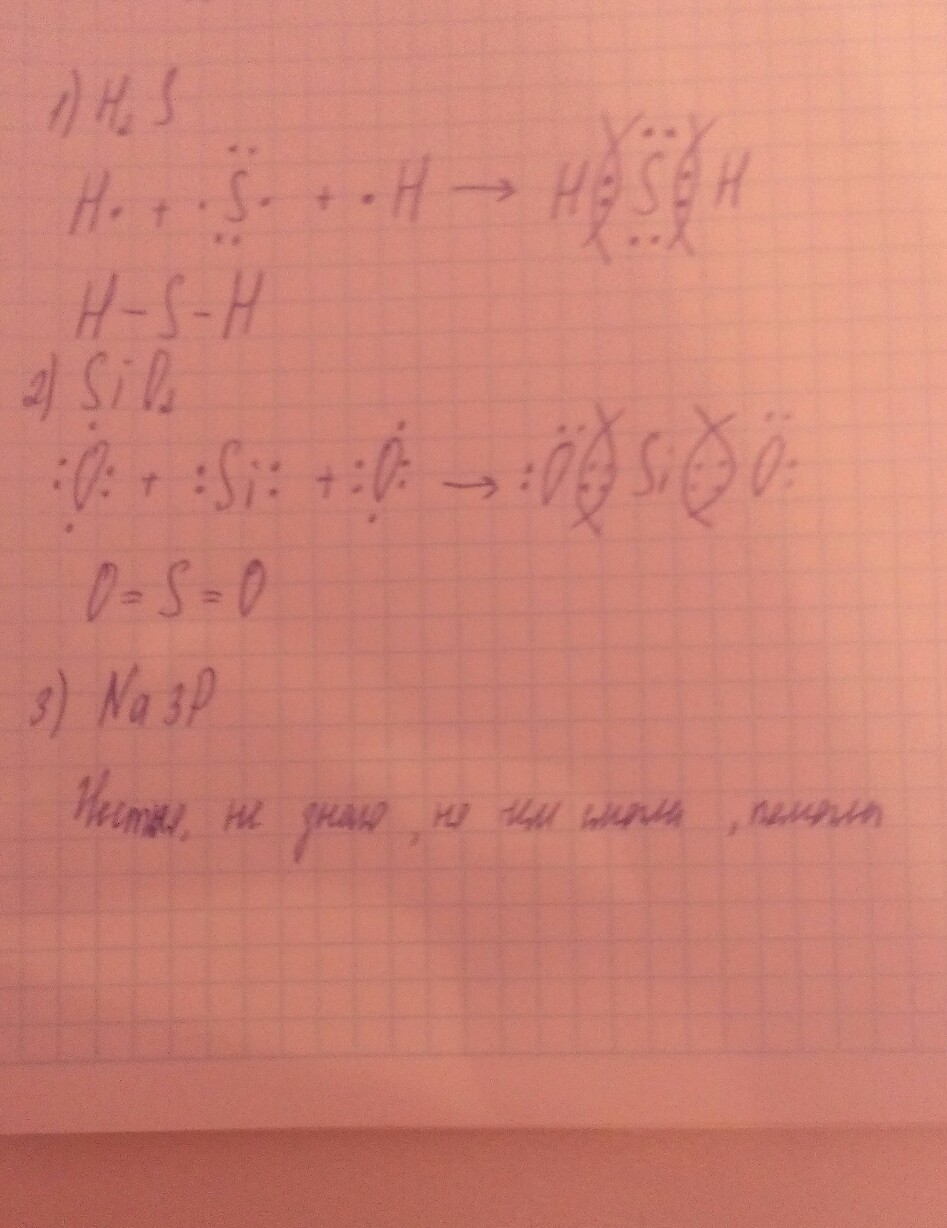 1) H₂S
H· + ·S̈· + ·H → H : S̈ : H
H-S-H
2) SiO₂
:Ȯ: + :Si: + :Ȯ: → :Ö :: Si :: Ö:
O=S=O
3) Na3P
Честно, не знаю, но чем смогла, помогла